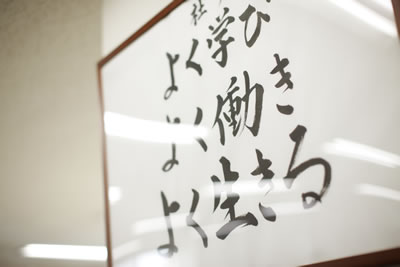 社
よく学び
よく働き
よく生きる